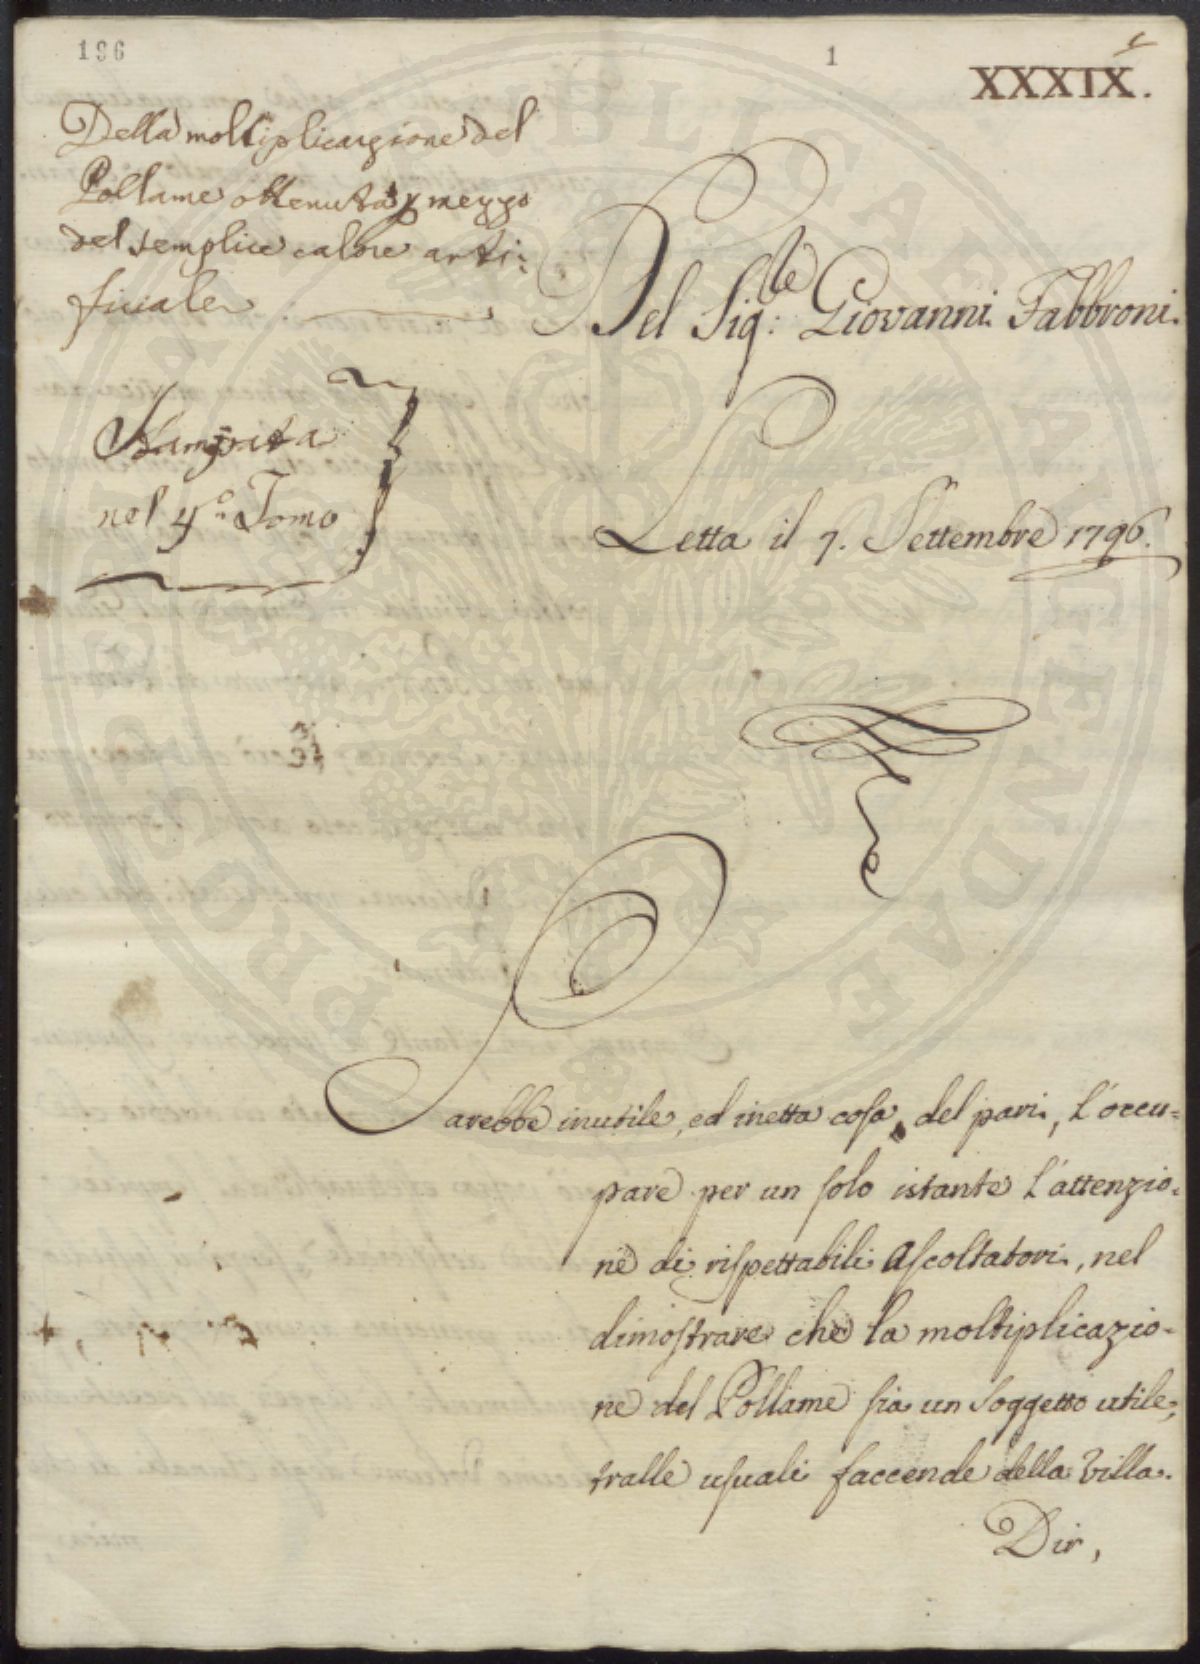 196
1
XXXIX.
Della moltiplicazione del
Pollame ottenuta p mezzo
del semplice calore arti:
ficiale
Del Sig:le Giovanni Fabbroni.
Stampata
nel 4o Tomo
Letta il 7. Settembre 1796.
Sarebbe inutile, ed inetta cosa del pari, l'occu=
pare per un solo istante l'attenzio=
ne di rispettabili Ascoltatori, nel
dimostrare che la moltiplicazio=
ne del Pollame sia un soggetto utile,
tralle usuali faccende della Villa.
Dir,